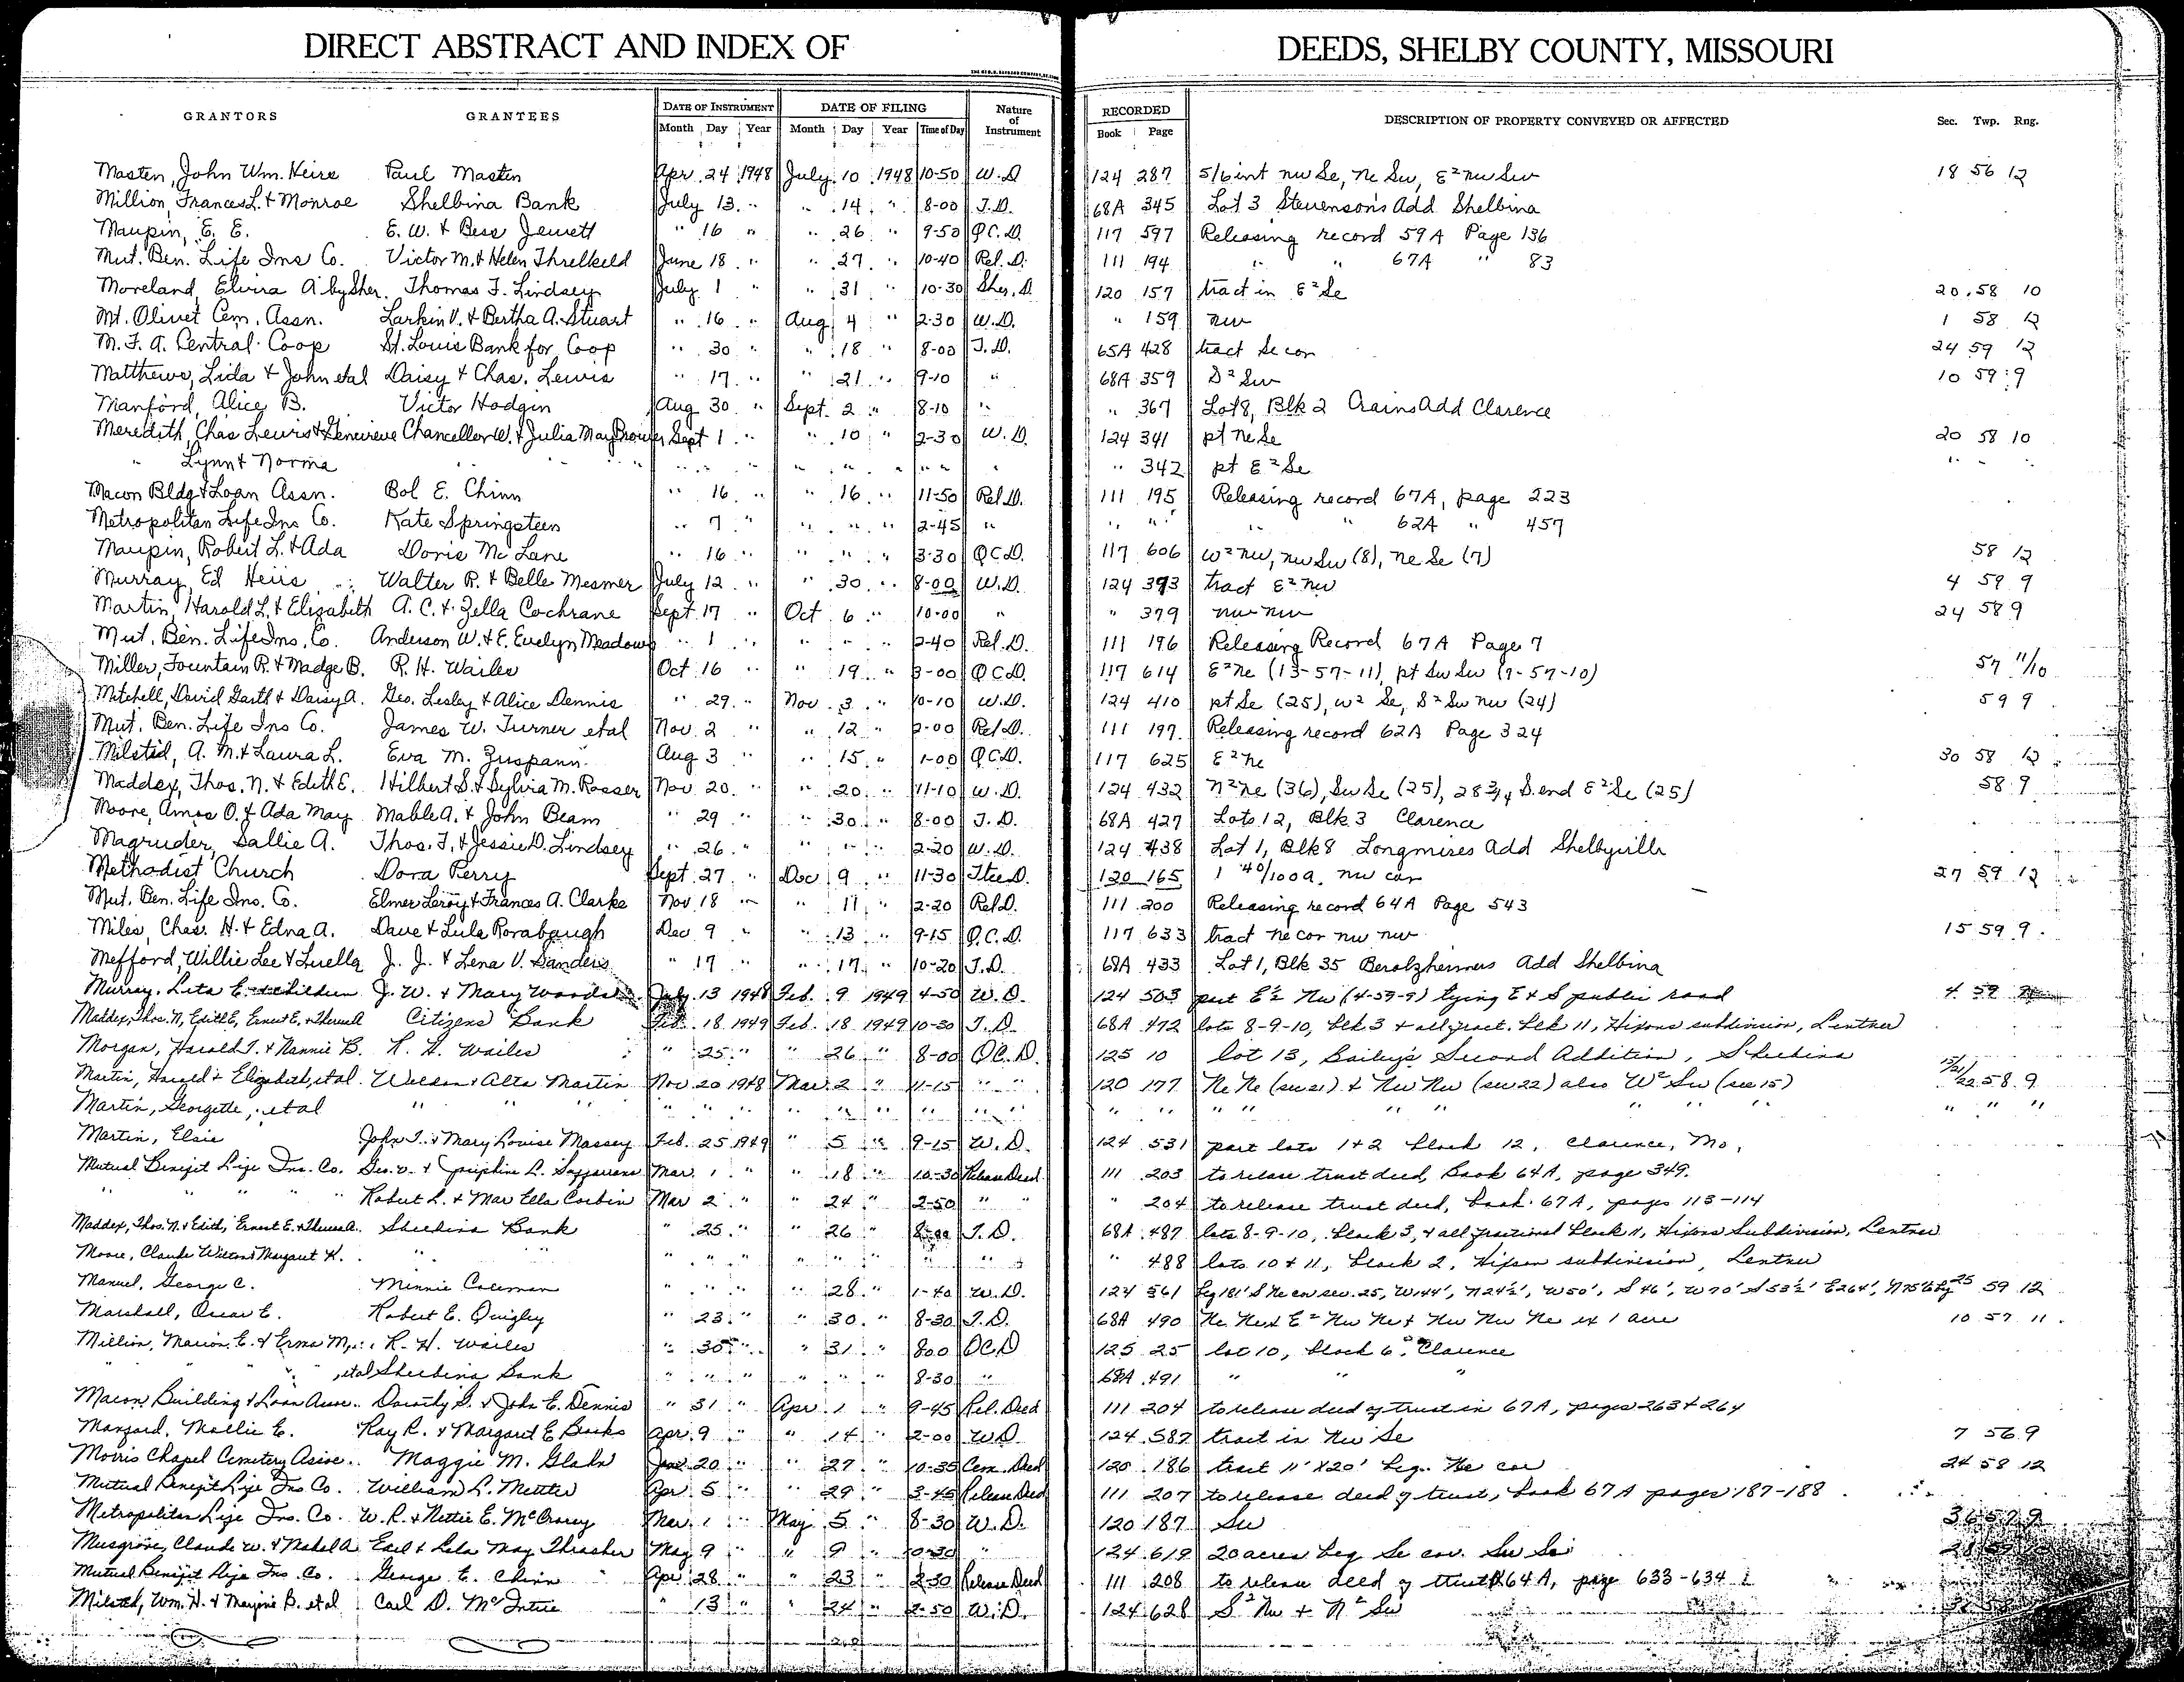 DIRECT ABSTRACT AND INDEX OF DEEDS, SHELBY COUNTY, MISSOURI
GRANTORS GRANTEES DATE OF INSTRUMENT DATE OF FILING Nature of Instrument RECORDED DESCRIPTION OF PROPERTY CONVEYED OR AFFECTED Sec. Twp. Rng.
Month Day Year Month Day Year Time of Day Book Page
Masten, John Wm. Heirs Paul Masten Apr. 24 1948 July 10 1948 10-50 W.D 124 287 5/6 int nw Se, Ne Sw, E² nw Sw 18 56 12
Million, Frances L. & Monroe Shelbina Bank July 13 " " 14 " 8-00 T.D. 68A 345 Lot 3 Stevenson's Add Shelbina
Maupin, E. E. E. W. & Bess Jewett " 16 " " 26 " 9-50 Q.C.D. 117 597 Releasing record 59A Page 136
Mut. Ben. Life Ins Co. Victor M. & Helen Threlkeld June 18 " " 27 " 10-40 Rel. D. 111 194 " " 67A " 83
Moreland, Elvira A by Sher. Thomas F. Lindsey July 1 " " 31 " 10-30 Sher. D. 120 157 tract in E² Se 20 58 10
Mt. Olivet Cem. Assn. Larkin V. & Bertha A. Stuart " 16 " Aug 4 " 2-30 W.D. " 159 nw 1 58 12
M. F. A. Central Coop St. Louis Bank for Coop " 30 " " 18 " 8-00 T.D. 65A 428 tract Se cor 24 59 12
Matthews, Lida & John etal Daisy & Chas. Lewis " 17 " " 21 " 9-10 " 68A 359 S² Sw 10 59 9
Manford, Alice B. Victor Hodgin Aug 30 " Sept. 2 " 8-10 " " 367 Lot 8, Blk 2 Crains Add Clarence
Meredith, Chas Lewis & Genevieve Chancellor W. & Julia May Brower Sept 1 " " 10 " 2-30 W.D. 124 341 pt Ne Se 20 58 10
" Lynn & Norma " " " " " " " " " " " " 342 pt E² Se " "
Macon Bldg & Loan Assn. Bol E. Chinn " 16 " " 16 " 11-50 Rel D. 111 195 Releasing record 67A, page 223
Metropolitan Life Ins Co. Kate Springsteen " 7 " " " " 2-45 " " " " " 62A " 457
Maupin, Robert L. & Ada Doris McLane " 16 " " " " 3-30 QCD. 117 606 W² nw, nw Sw (8), Ne Se (7) 58 12
Murray, Ed Heirs Walter R. & Belle Mesmer July 12 " " 30 " 8-00 W.D. 124 393 tract E² nw 4 59 9
Martin, Harold L. & Elizabeth A. C. & Zella Cochrane Sept 17 " Oct 6 " 10-00 " " 379 nw nw 24 58 9
Mut. Ben. Life Ins. Co. Anderson W. & E. Evelyn Meadows " 1 " " " " 2-40 Rel. D. 111 196 Releasing Record 67A Page 7
Miller, Fountain R. & Madge B. R. H. Wailes Oct 16 " " 19 " 3-00 QCD. 117 614 E² Ne (13-57-11), pt Sw Sw (9-57-10) 57 11/10
Mitchell, David Garth & Daisy A. Geo. Lesley & Alice Dennis " 29 " Nov. 3 " 10-10 W.D. 124 410 pt Se (25), W² Se, S² Sw nw (24) 59 9
Mut. Ben. Life Ins Co. James W. Turner etal Nov. 2 " " 12 " 2-00 Rel D. 111 197 Releasing record 62A Page 324
Milsted, A. M. & Laura L. Eva M. Zuspann Aug 3 " " 15 " 1-00 Q.C.D. 117 625 E² Ne 30 58 12
Maddex, Thos. N. & Edith E. Hilbert S. & Sylvia M. Rosser Nov. 20 " " 20 " 11-10 W.D. 124 432 N² Ne (36), Sw Se (25), 28 3/4 S. end E² Se (25) 58 9
Moore, Amos O. & Ada May Mable A. & John Beam " 29 " " 30 " 8-00 T.D. 68A 427 Lots 12, Blk 3 Clarence
Magruder, Sallie A. Thos. F. & Jessie D. Lindsey " 26 " " " " 2-20 W.D. 124 438 Lot 1, Blk 8 Longmires Add Shelbyville
Methodist Church Dora Perry Sept. 27 " Dec 9 " 11-30 Ttee D. 120 165 1 40/100 a. nw cor 27 59 12
Mut. Ben. Life Ins. Co. Elmer Leroy & Frances A. Clarke Nov 18 " " 11 " 2-20 Rel D. 111 200 Releasing record 64A Page 543
Miles, Chas. H. & Edna A. Dave & Lula Rorabaugh Dec 9 " " 13 " 9-15 Q.C.D. 117 633 tract Ne cor nw nw 15 59 9
Mefford, Willie Lee & Luella J. J. & Lena V. Sanders " 17 " " 17 " 10-20 T.D. 68A 433 Lot 1, Blk 35 Berolzheimers Add Shelbina
Murray, Leta E. J. W. & Mary July 13 1948 Feb. 9 1949 4-50 W.D. 124 503 part E½ Nw (4-59-9) lying E & S public road 4 59
Maddex, Thos. N, Edith E, Ernest E. & Citizens Bank Feb. 18 1949 Feb. 18 1949 10-30 T.D. 68A 472 lots 8-9-10, blk 3 & all fract. blk 11, Hixons subdivision, Lentner
Morgan, Harold T. & Nannie B. R. H. Wailes " 25 " " 26 " 8-00 QC.D. 125 10 lot 13, Bailey's Second Addition, Shelbina
Martin, Harold & Elizabeth, etal. Weldon & Alta Martin Nov 20 1948 Mar 2 " 11-15 " " 120 177 Ne Ne (sec 21) & Nw Nw (sec 22) also W² Sw (sec 15) 15/21/22 58 9
Martin, Georgette, etal " " " " " " " " " " " " " " " " " " " " "
Martin, Elsie John T. & Mary Louise Massey Feb. 25 1949 " 5 " 9-15 W.D. 124 531 part lots 1 & 2 block 12, Clarence, Mo,
Mutual Benefit Life Ins. Co. Geo. & Josephine L. Mar. 1 " " 18 " 10-30 Release Deed 111 203 to release trust deed, Book 64A, page 349.
" " " " Robert L. & Mar Ella Corbin Mar 2 " " 24 " 2-50 " " " 204 to release trust deed, book 67A, pages 113-114
Maddex, Thos. N. & Edith, Ernest E. & Shelbina Bank " 25 " " 26 " 8-00 T.D. 68A 487 lots 8-9-10, block 3, & all fractional block 11, Hixons Subdivision, Lentner
Moore, Claude Wilson & Margaret H. " " " " " " " " " " " 488 lots 10 & 11, block 2, Hixson subdivision, Lentner
Manuel, George C. Minnie Coleman " " " " 28 " 1-40 W.D. 124 561 beg 181' S Ne cor sec. 25, W144', N24½', W50', S46', W70' S53½' E264', N75' to beg 25 59 12
Marshall, Oscar E. Robert E. Quigley " 23 " " 30 " 8-30 T.D. 68A 490 Ne Ne & E² Nw Ne & Nw Nw Ne ex 1 acre 10 57 11
Million, Marion E. & Erma M. R. H. Wailes " 30 " " 31 " 8-00 QCD 125 25 lot 10, block 6, Clarence
" " " , etal Shelbina Bank " " " " " " 8-30 " 68A 491 " " "
Macon Building & Loan Assn. Dorothy S. & John E. Dennis " 31 " Apr 1 " 9-45 Rel. Deed 111 204 to release deed of trust in 67A, pages 263 & 264
Mollie E. Ray R. & Margaret E Banks Apr. 9 " " 14 " 2-00 W.D. 124 587 tract in Nw Se 7 56 9
Morris Chapel Cemetery Assoc. Maggie M. Glahn 20 " " 27 " 10-35 Cem. Deed 120 186 tract 11' X 20' beg. Ne cor 24 58 12
Mutual Benefit Life Ins Co. William L. Apr. 5 " " 29 " 3-45 Release Deed 111 207 to release deed of trust, book 67A pages 187-188
Metropolitan Life Ins. Co. W. R. & Nettie E. McCrorey Mar. 1 " May 5 " 8-30 W.D. 120 187 Sw 36 57 9
Musgrove, Claude W. & Mabel A Earl & Lela May Thrasher May 9 " " 9 " 10-30 " 124 619 20 acres beg Se cor. Sw Se
Mutual Benefit Life Ins. Co. George E. Chinn Apr 28 " " 23 " 2-30 Release Deed 111 208 to release deed of trust 64A, page 633-634
Milsted, Wm. H. & Marjorie B. etal Carl D. McIntire " 13 " " 24 " 2-50 W.D. 124 628 S² Nw & N² Sw